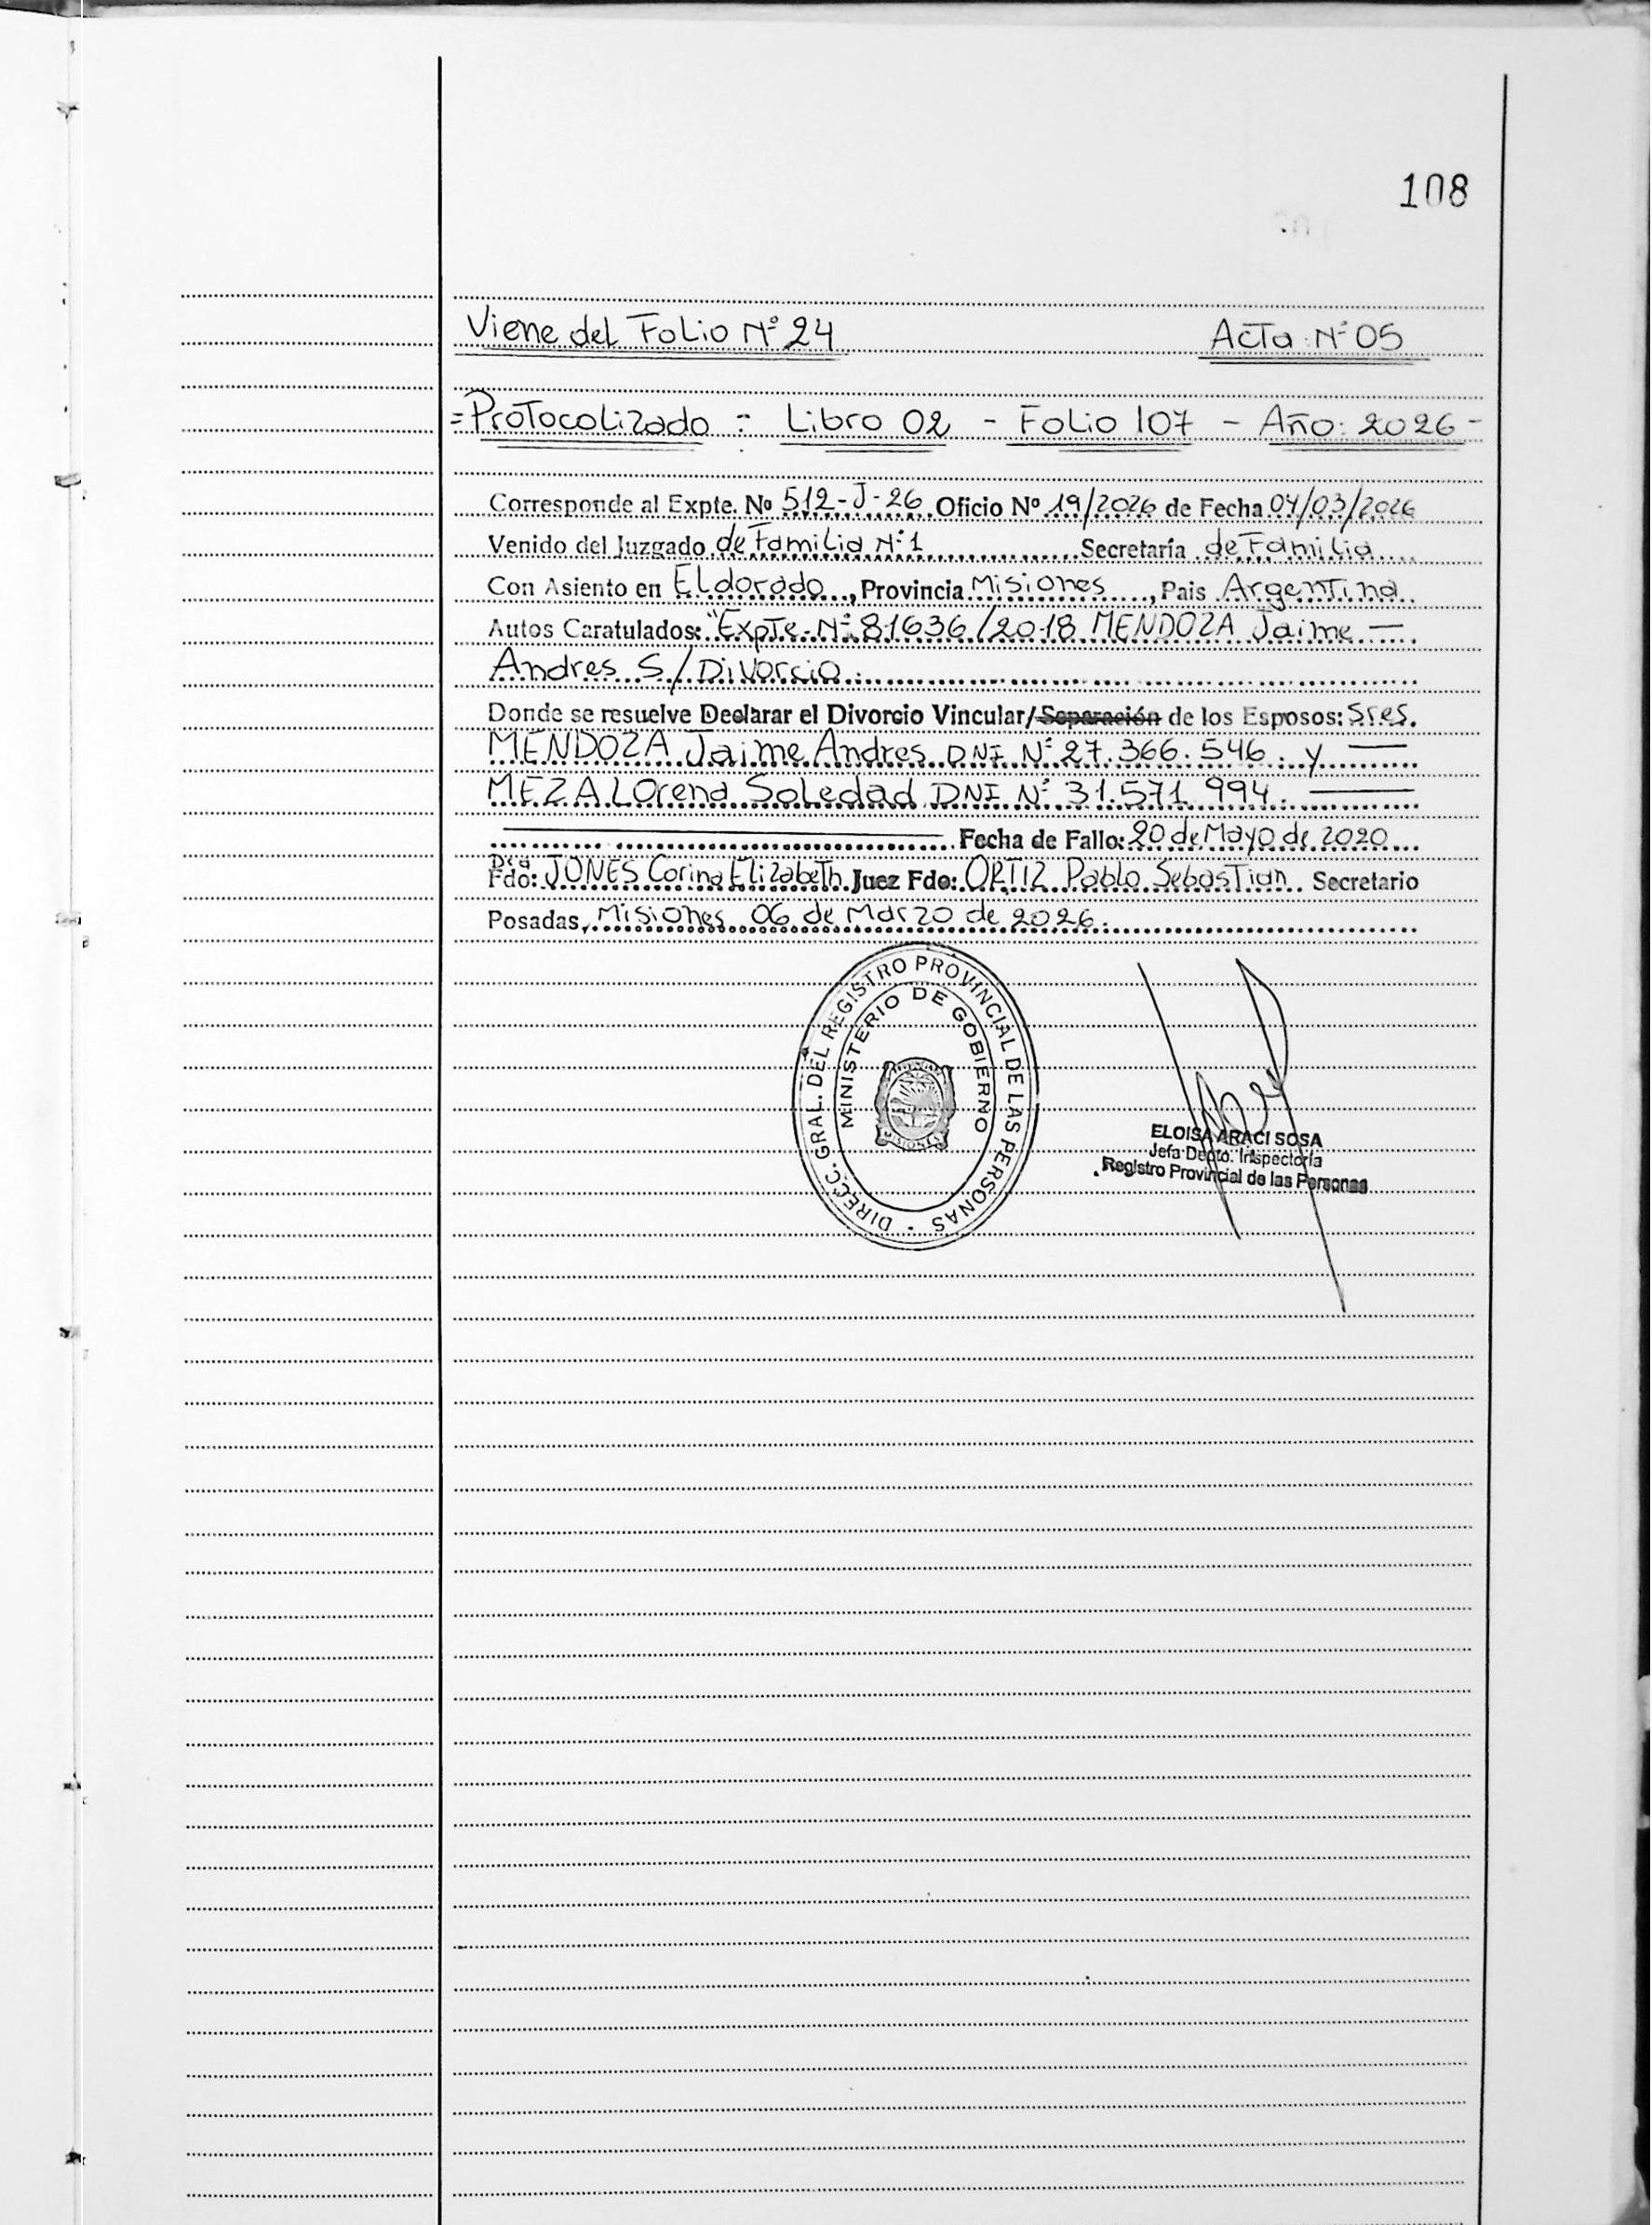 108
Viene del Folio Nº 24 Acta Nº 05
= Protocolizado = Libro 02 - Folio 107 - Año: 2026 -
Corresponde al Expte. No 512-J-26 Oficio Nº 19/2026 de Fecha 04/03/2026
Venido del Juzgado de Familia Nº 1 Secretaría de Familia
Con Asiento en Eldorado, Provincia Misiones, Pais Argentina
Autos Caratulados: "Expte. Nº 81636/2018 MENDOZA Jaime —
Andres S/Divorcio.
Donde se resuelve Declarar el Divorcio Vincular/Separación de los Esposos: Sres.
MENDOZA Jaime Andres DNI Nº 27.366.546. y —
MEZA Lorena Soledad DNI Nº 31.571.994. —
Fecha de Fallo: 20 de Mayo de 2020
Dra
Fdo: JONES Corina Elizabeth Juez Fdo: ORTIZ Pablo Sebastian Secretario
Posadas, Misiones 06 de Marzo de 2026.
DIRECC. GRAL. DEL REGISTRO PROVINCIAL DE LAS PERSONAS
MINISTERIO DE GOBIERNO
MISIONES
ELOISA ARACI SOSA
Jefa Depto. Inspectoría
Registro Provincial de las Personas